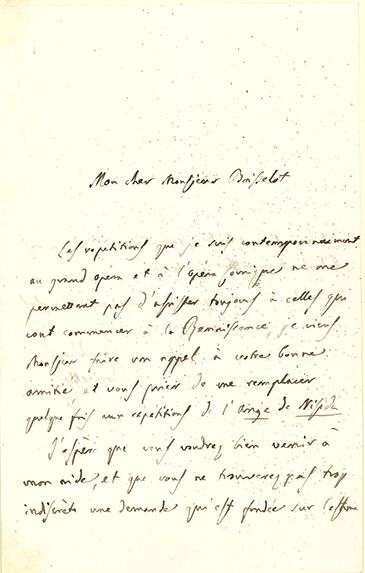 Mon cher Monsieur Boisselot
Les repetitions que je suis contemporainement
au grand opera et à l'opéra comique ne me
permettant pas d'assister toujours à celles qui
vont commencer à la Renaissance, je viens
Monsieur faire un appel à votre bonne
amitié, et vous prier de me remplacer
quelque fois aux repetitions de l'Ange de Nisida
J'espère que vous voudrez bien venir à
mon aide, et que vous ne trouverez pas trop
indiscrète une demande qui est fondée sur l'estime